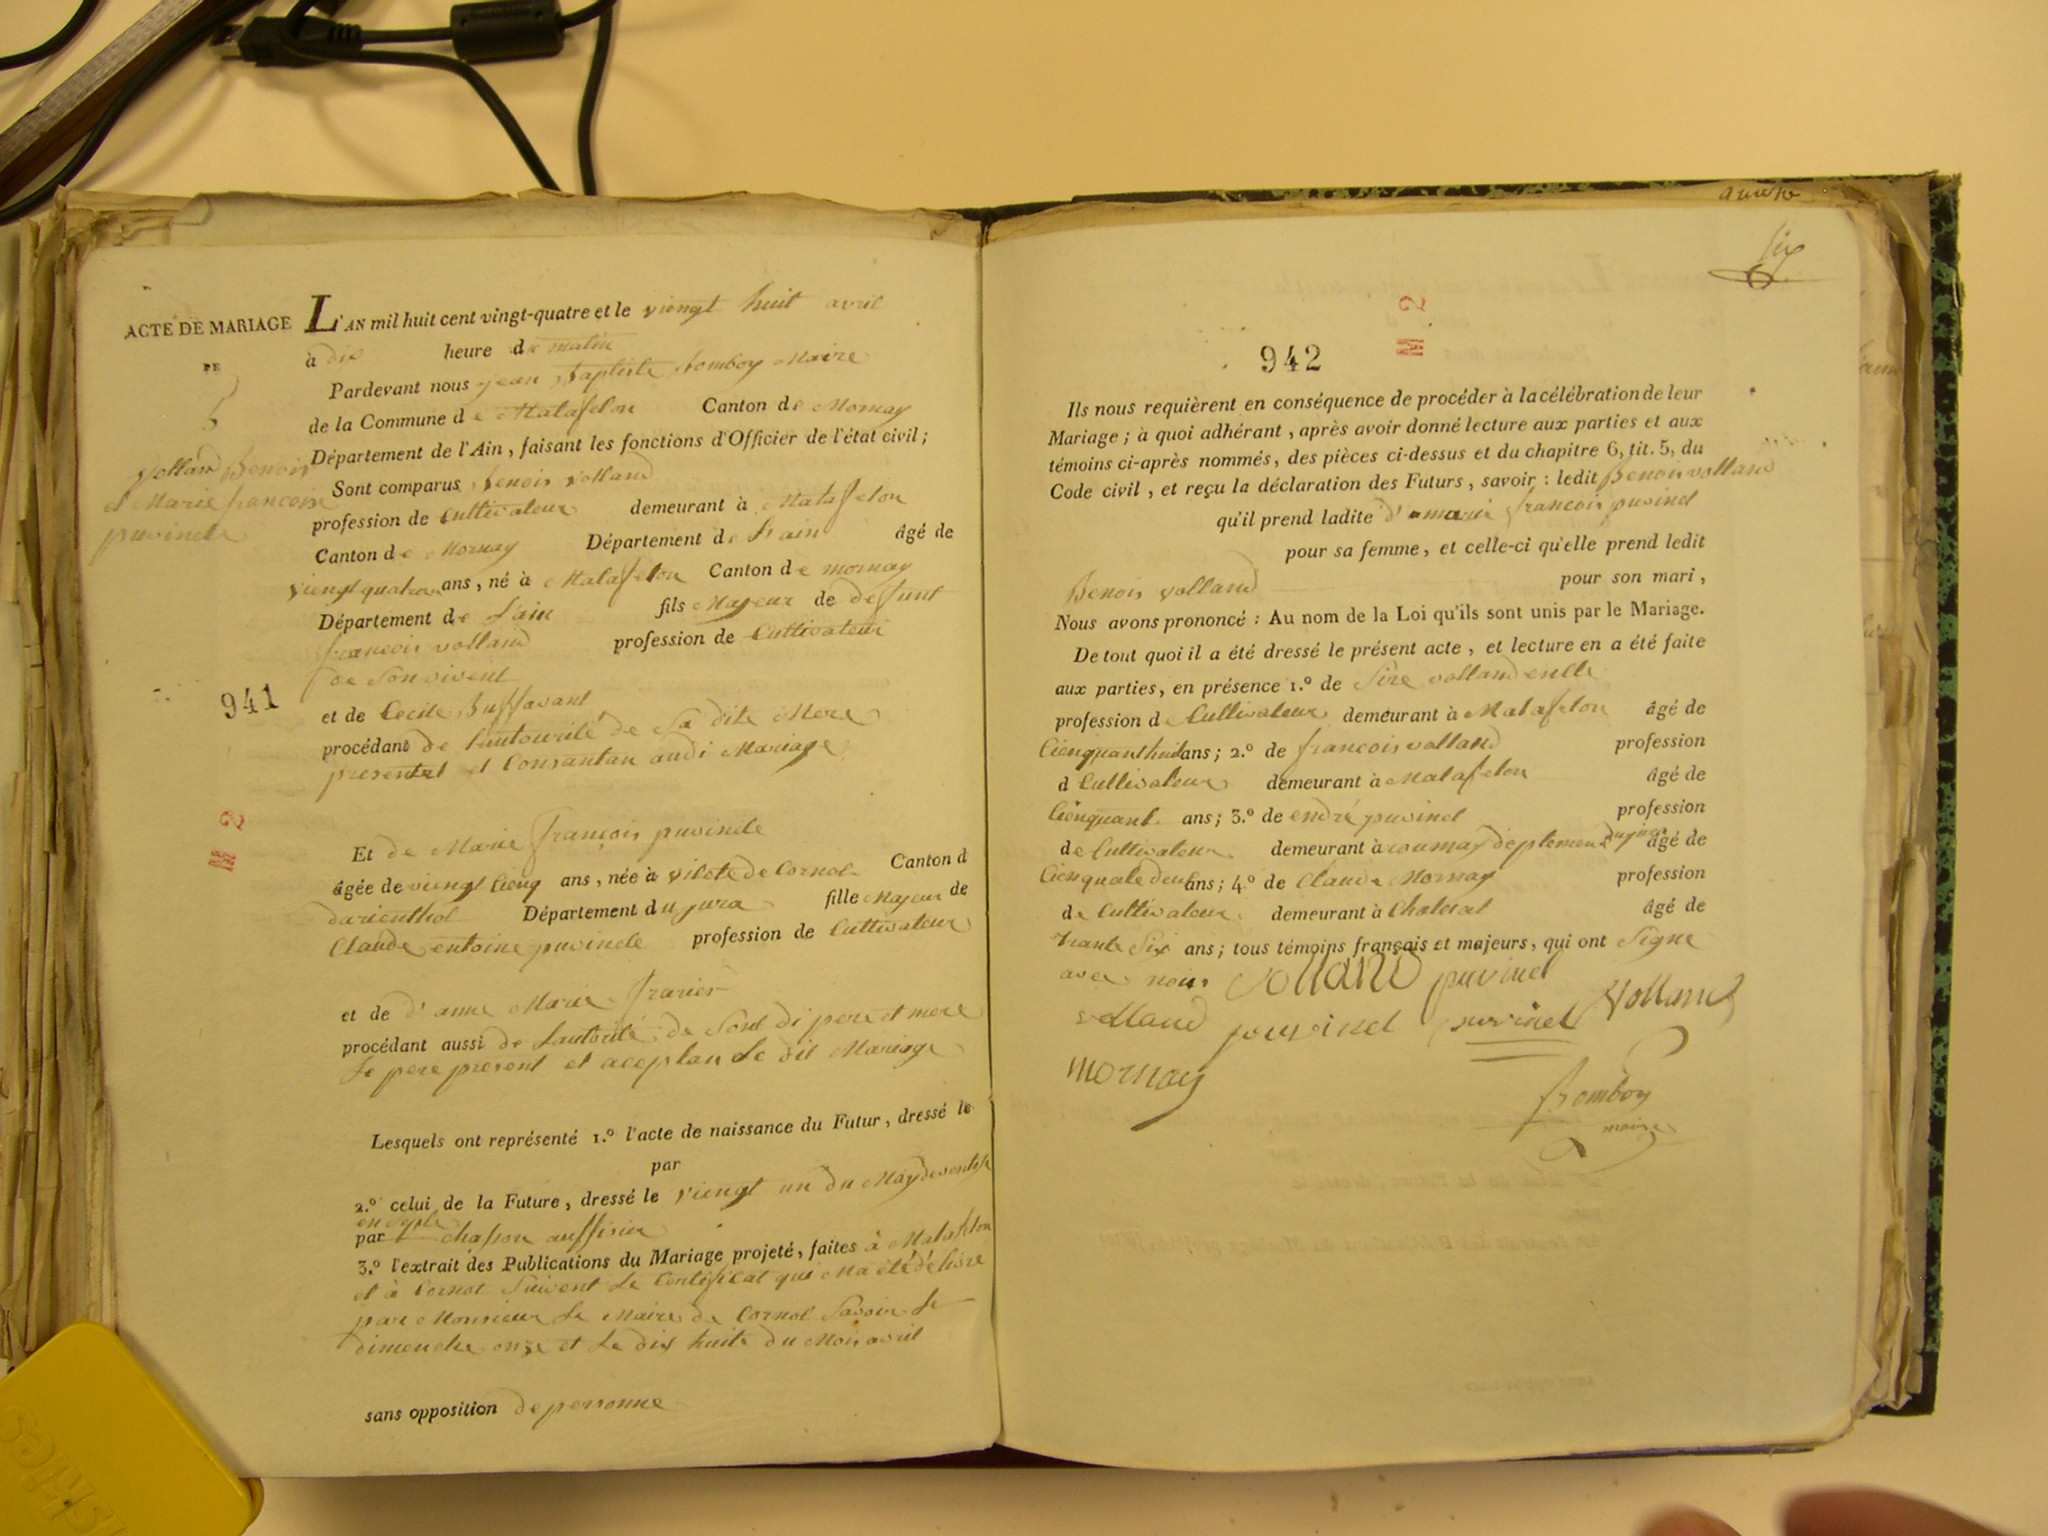 ACTE DE MARIAGE
DE
5
volland Benois
et Marie francoise
puvinele
941
L'AN mil huit cent vingt-quatre et le viengt huit avril
à dix heure de matin
Pardevant nous jean Baptiste Bomboy Maire
de la Commune de Matafelon Canton de Mornay
Département de l'Ain, faisant les fonctions d'Officier de l'état civil;
Sont comparus Benois volland
profession de Cultivateur demeurant à Matafelon
Canton de Mornay Département de Lain âgé de
viengt quatre ans, né à Matafelon Canton de mornay
Département de Lain fils Majeur de defunt
francois volland profession de Cultivateur
de Son vivent
et de Cecile Buffavant
procédant de lautourité de Sa dite Mere
present et Consantan audi Mariage
Et de Marie françois puvinele
âgée de viengt Cienq ans, née à vilete de Cornol Canton d
darienthol Département du jura fille Majeur de
Claude entoine puvinele profession de Cultivateur
et de d'anne Marie frarier
procédant aussi de Lautorité de Sont di pere et mere
Le pere present et aceptan Le dit Mariage
Lesquels ont représenté 1.º l'acte de naissance du Futur, dressé le
par
2.º celui de la Future, dressé le viengt un du May
par chapon auffisier
3.º l'extrait des Publications du Mariage projeté, faites à Matafelon
et à Cornot Suivent Le Certificat qui Ma été délivre
par Monsieur Le Maire de Cornol Savoir Le
dimenche onze et Le dix huite du Mois avril
sans opposition de personne
Six
6
942
Ils nous requièrent en conséquence de procéder à la célébration de leur
Mariage; à quoi adhérant, après avoir donné lecture aux parties et aux
témoins ci-après nommés, des pièces ci-dessus et du chapitre 6, tit. 5, du
Code civil, et reçu la déclaration des Futurs, savoir: ledit Benois volland
qu'il prend ladite d' marie francois puvinel
pour sa femme, et celle-ci qu'elle prend ledit
Benois volland pour son mari,
Nous avons prononcé: Au nom de la Loi qu'ils sont unis par le Mariage.
De tout quoi il a été dressé le présent acte, et lecture en a été faite
aux parties, en présence 1.º de Sire volland
profession de Cultivateur demeurant à Matafelon âgé de
Cienquant huit ans; 2.º de francois volland profession
d Cultivateur demeurant à Matafelon âgé de
Cienquant ans; 3.º de endré puvinel profession
de Cultivateur demeurant à âgé de
Cienquate deux ans; 4.º de Claude Mornay profession
de Cultivateur demeurant à Chaleat âgé de
trante Six ans; tous témoins français et majeurs, qui ont Signe
avec nous volland puvinel
volland pouvinel puvinel Volland
mornay
Bomboy
maire